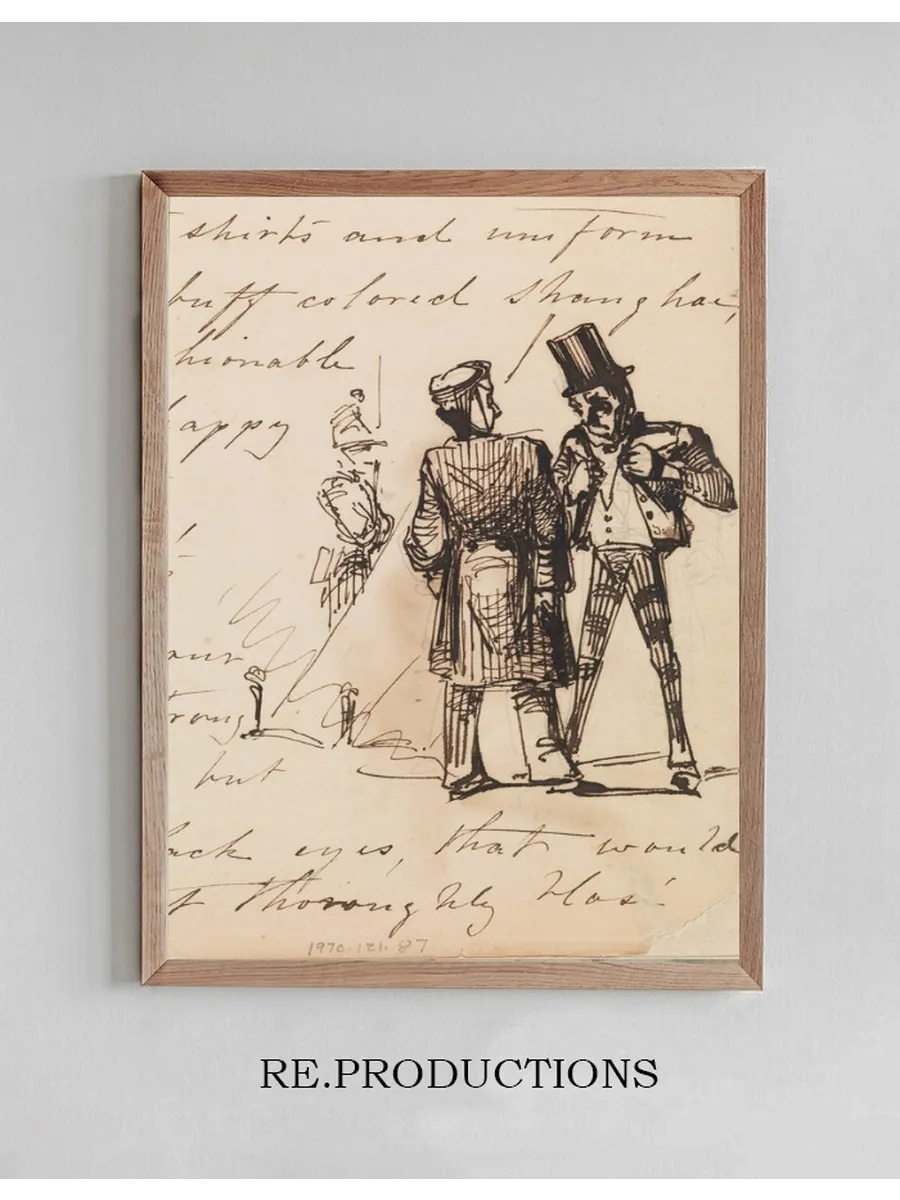 shirts and uniform
buff colored shanghae,
hionable
appy
our
trong
but
ack eyes, that would
t thoroughly
1970.121.87
RE.PRODUCTIONS